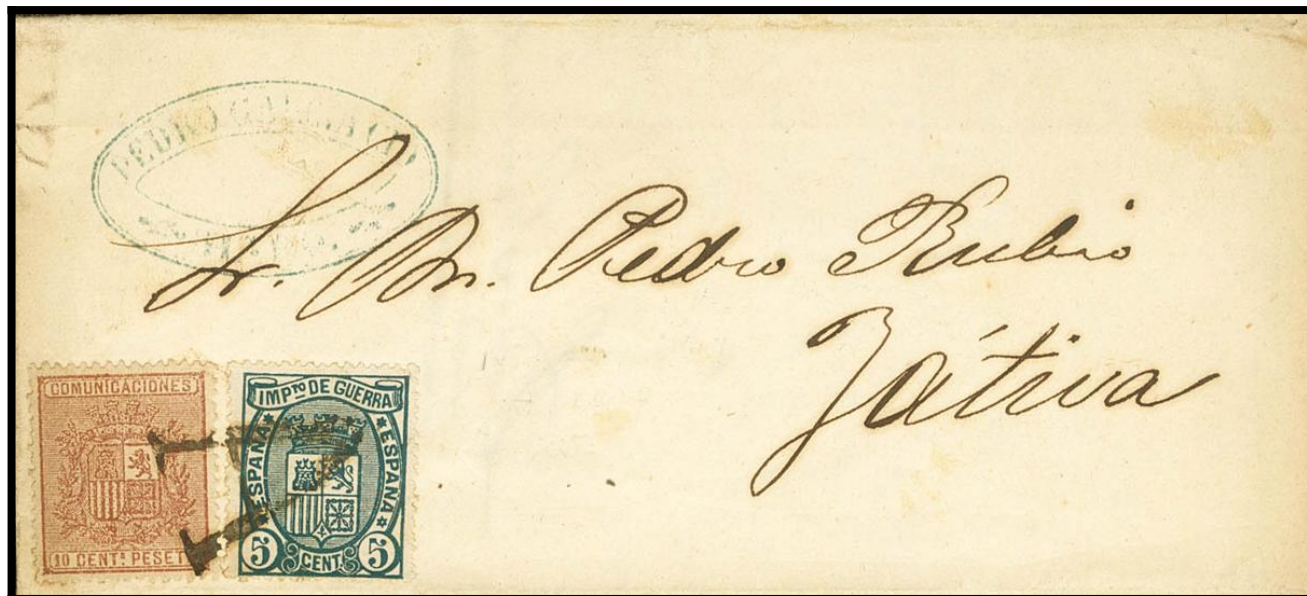 PEDRO
Sr. Dn. Pedro Rubio
Játiva
COMUNICACIONES
10 CENTs PESETA
IMPTO DE GUERRA
ESPAÑA
ESPAÑA
5 CENT. 5